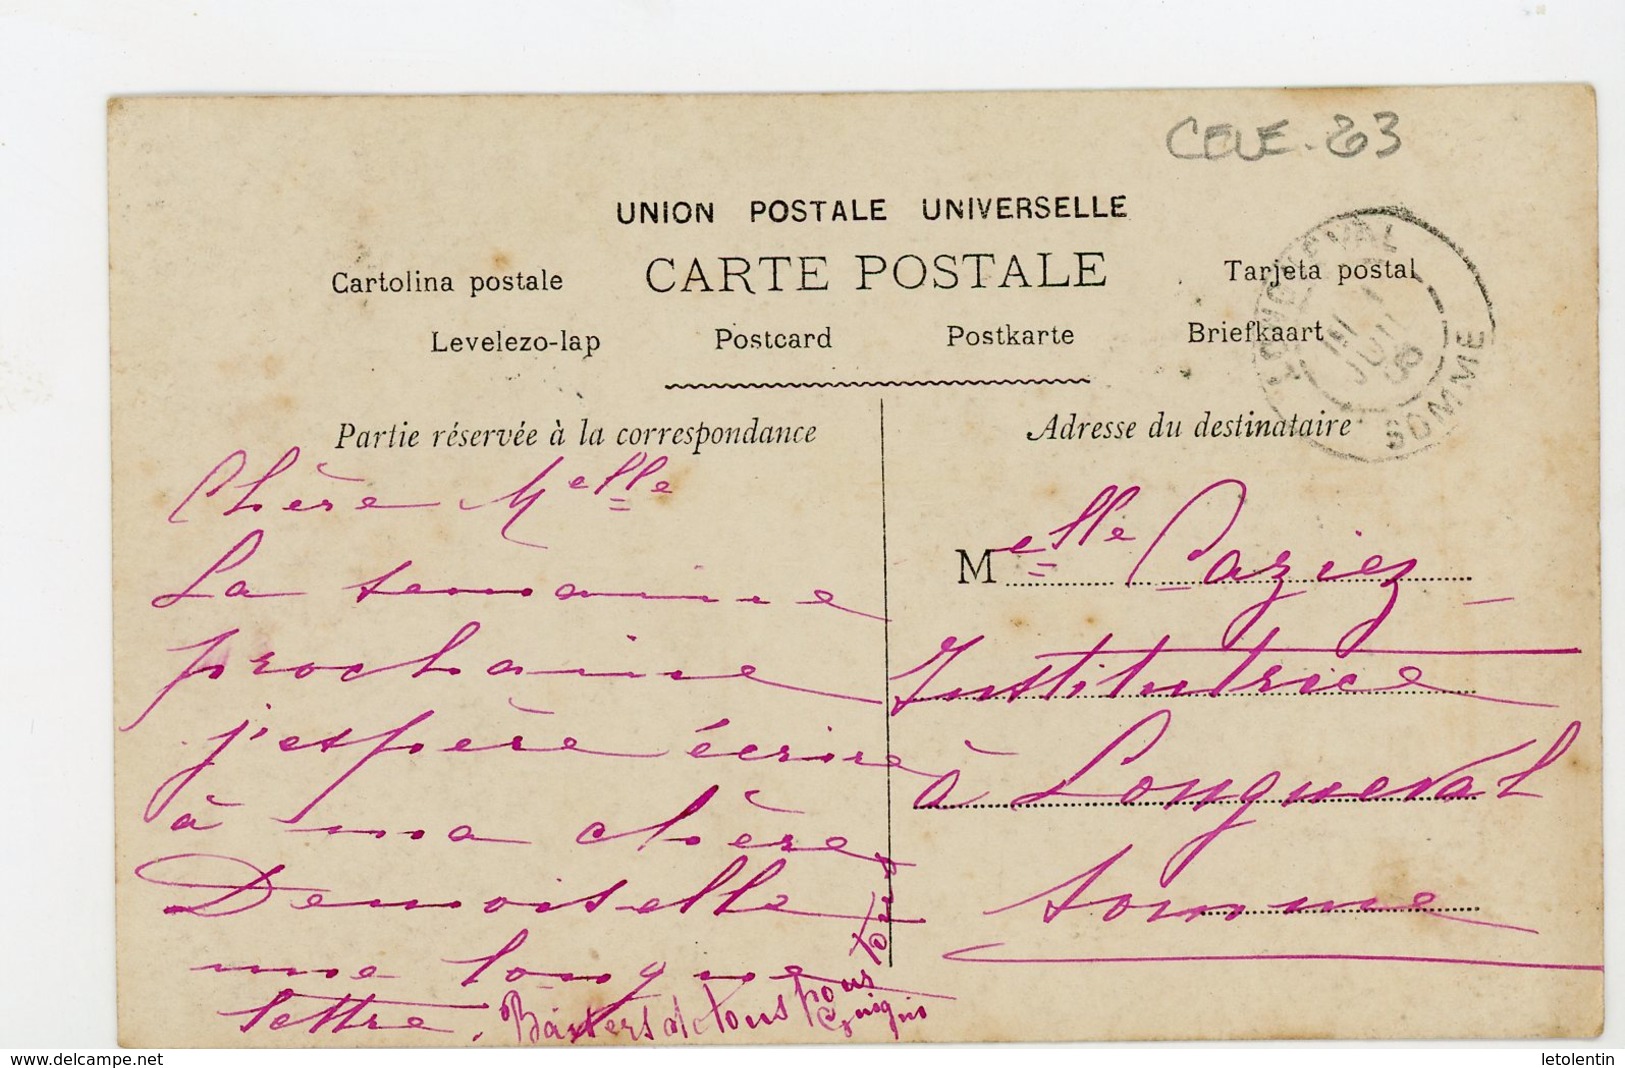 CELE-83
UNION POSTALE UNIVERSELLE
CARTE POSTALE
Cartolina postale
Tarjeta postal
Levelezo-lap
Postcard
Postkarte
Briefkaart
LONGUEVAL
SOMME
Partie réservée à la correspondance
Adresse du destinataire
Chère Melle
La semaine
prochaine
j'espère écrire
à ma chère
Demoiselle
une longue
lettre. Baisers de tous pous tous
Melle Caziez
Institutrice
à Longueval
Somme
www.delcampe.net
letolentin